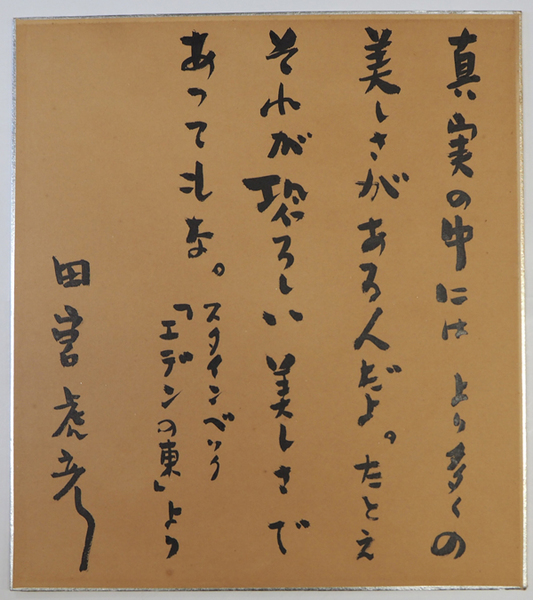 真実の中には より多くの
美しさがある人だよ。たとえ
それが恐ろしい 美しさで
あってもな。
スタインベック
「エデンの東」より
田宮虎彦